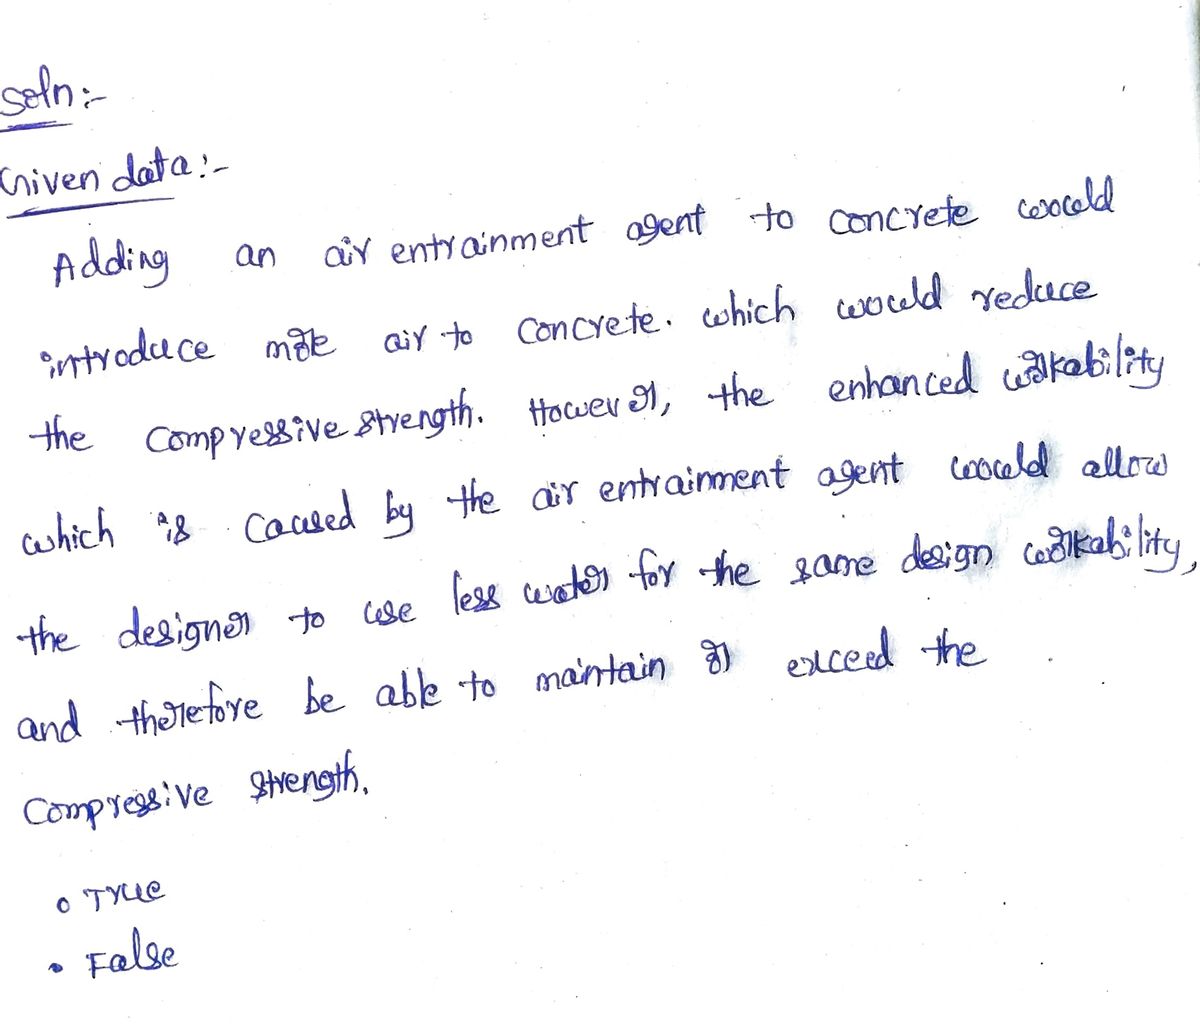 Soln:-
Given data:-
Adding an air entrainment agent to concrete would
introduce more air to concrete. which would reduce
the compressive strength. However, the enhanced workability
which is caused by the air entrainment agent would allow
the designer to use less water for the same design workability,
and therefore be able to maintain or exceed the
compressive strength.
o True
• False